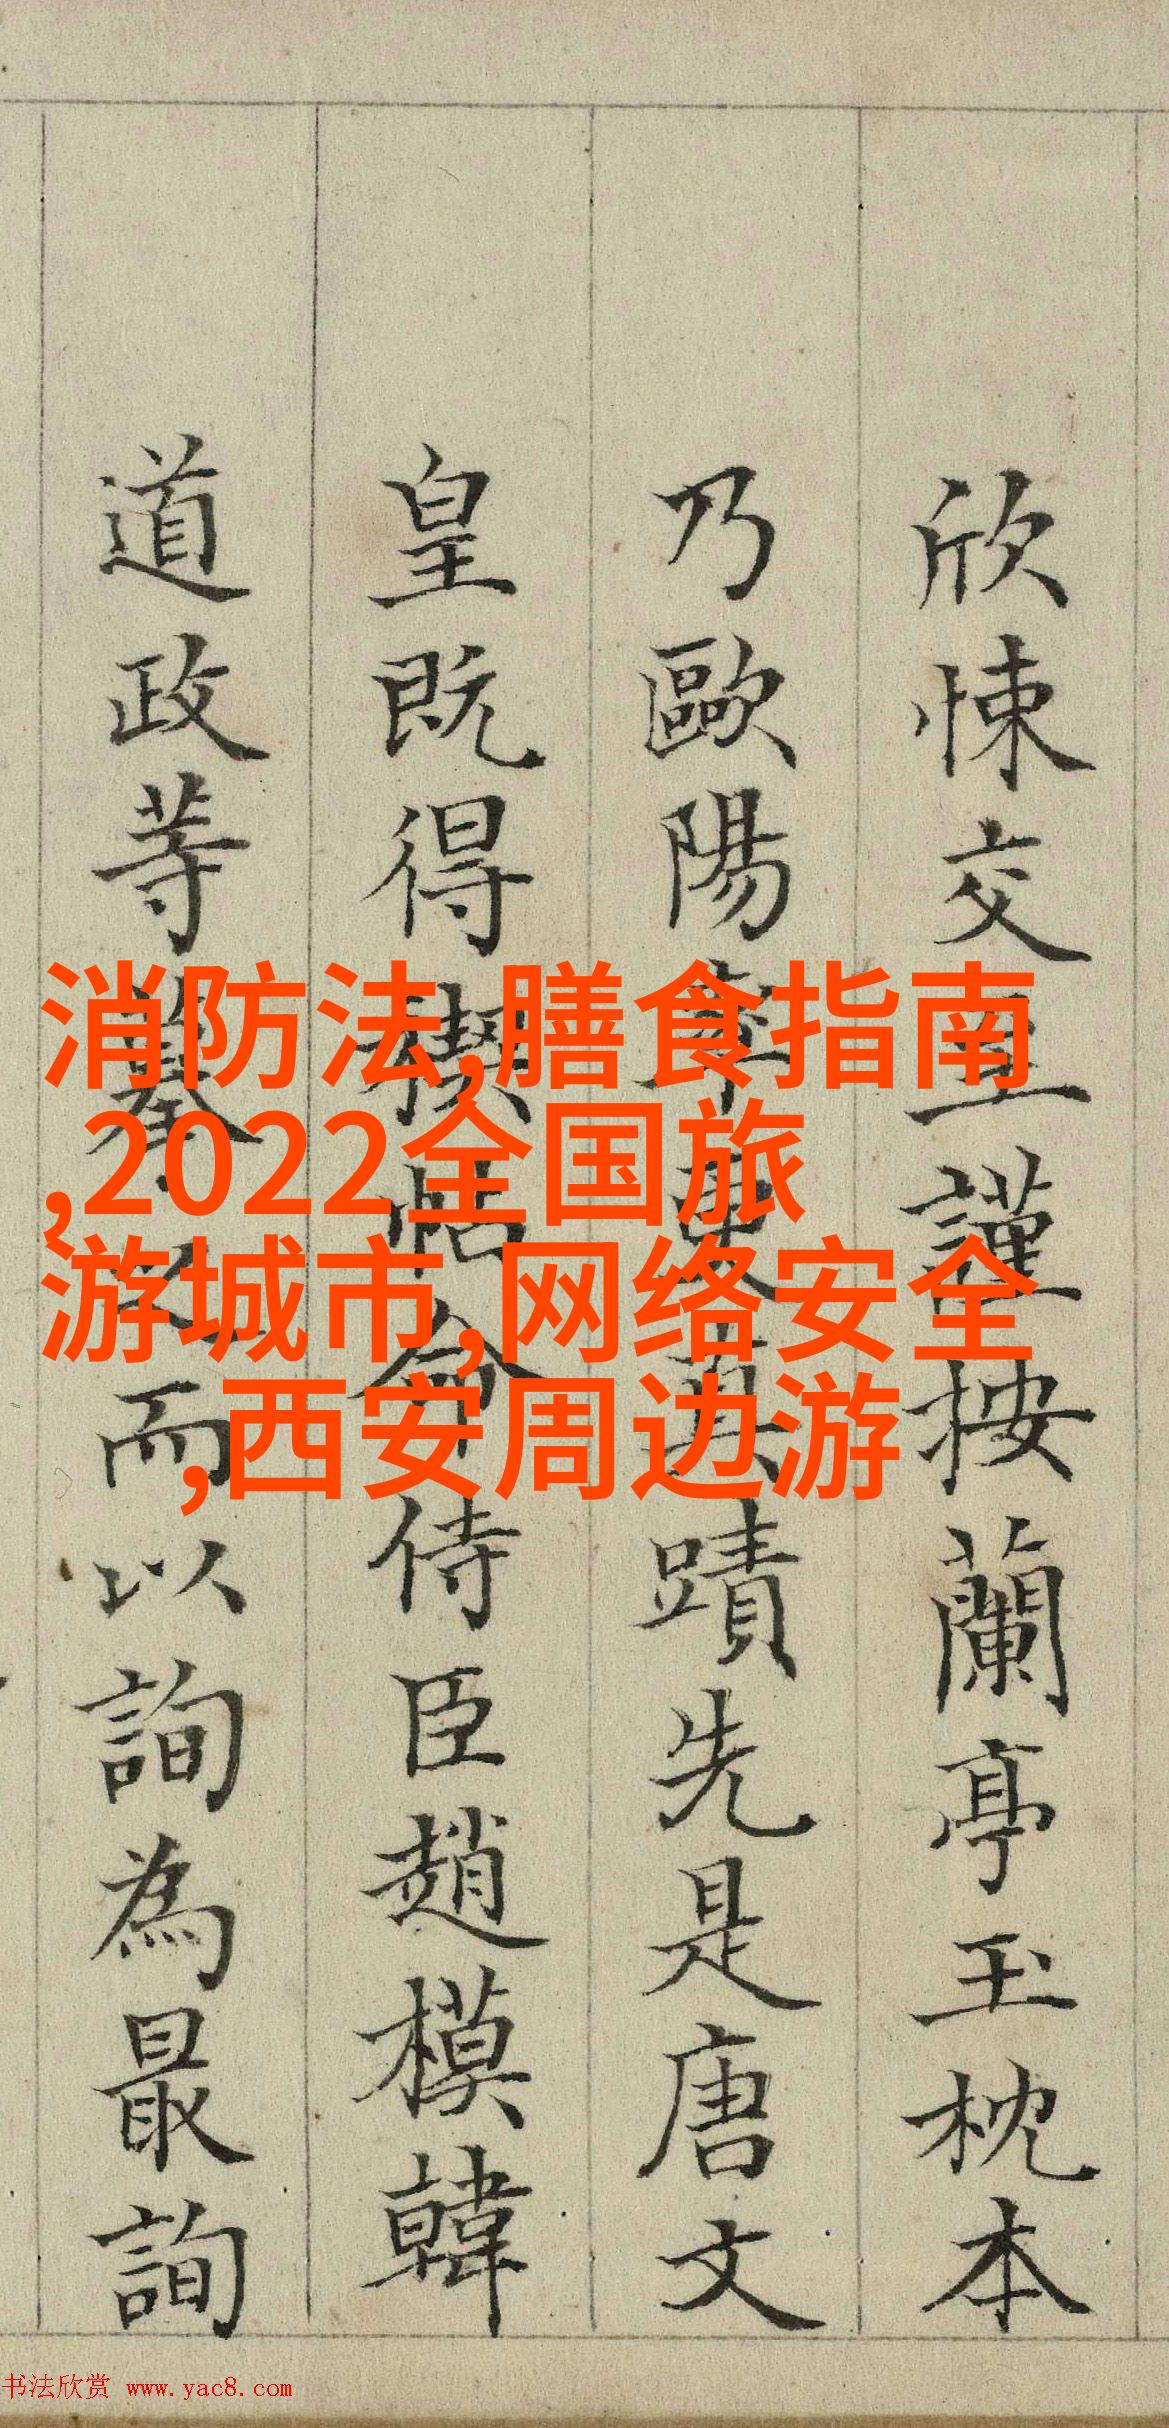 欣悚交至謹按蘭亭玉枕本
乃歐陽率更真蹟先是唐文
皇既得禊帖命侍臣趙模韓
道政等摹而以詢為最詢
消防法,膳食指南
,2022全国旅
游城市,网络安全
,西安周边游
书法欣赏 www.yac8.com